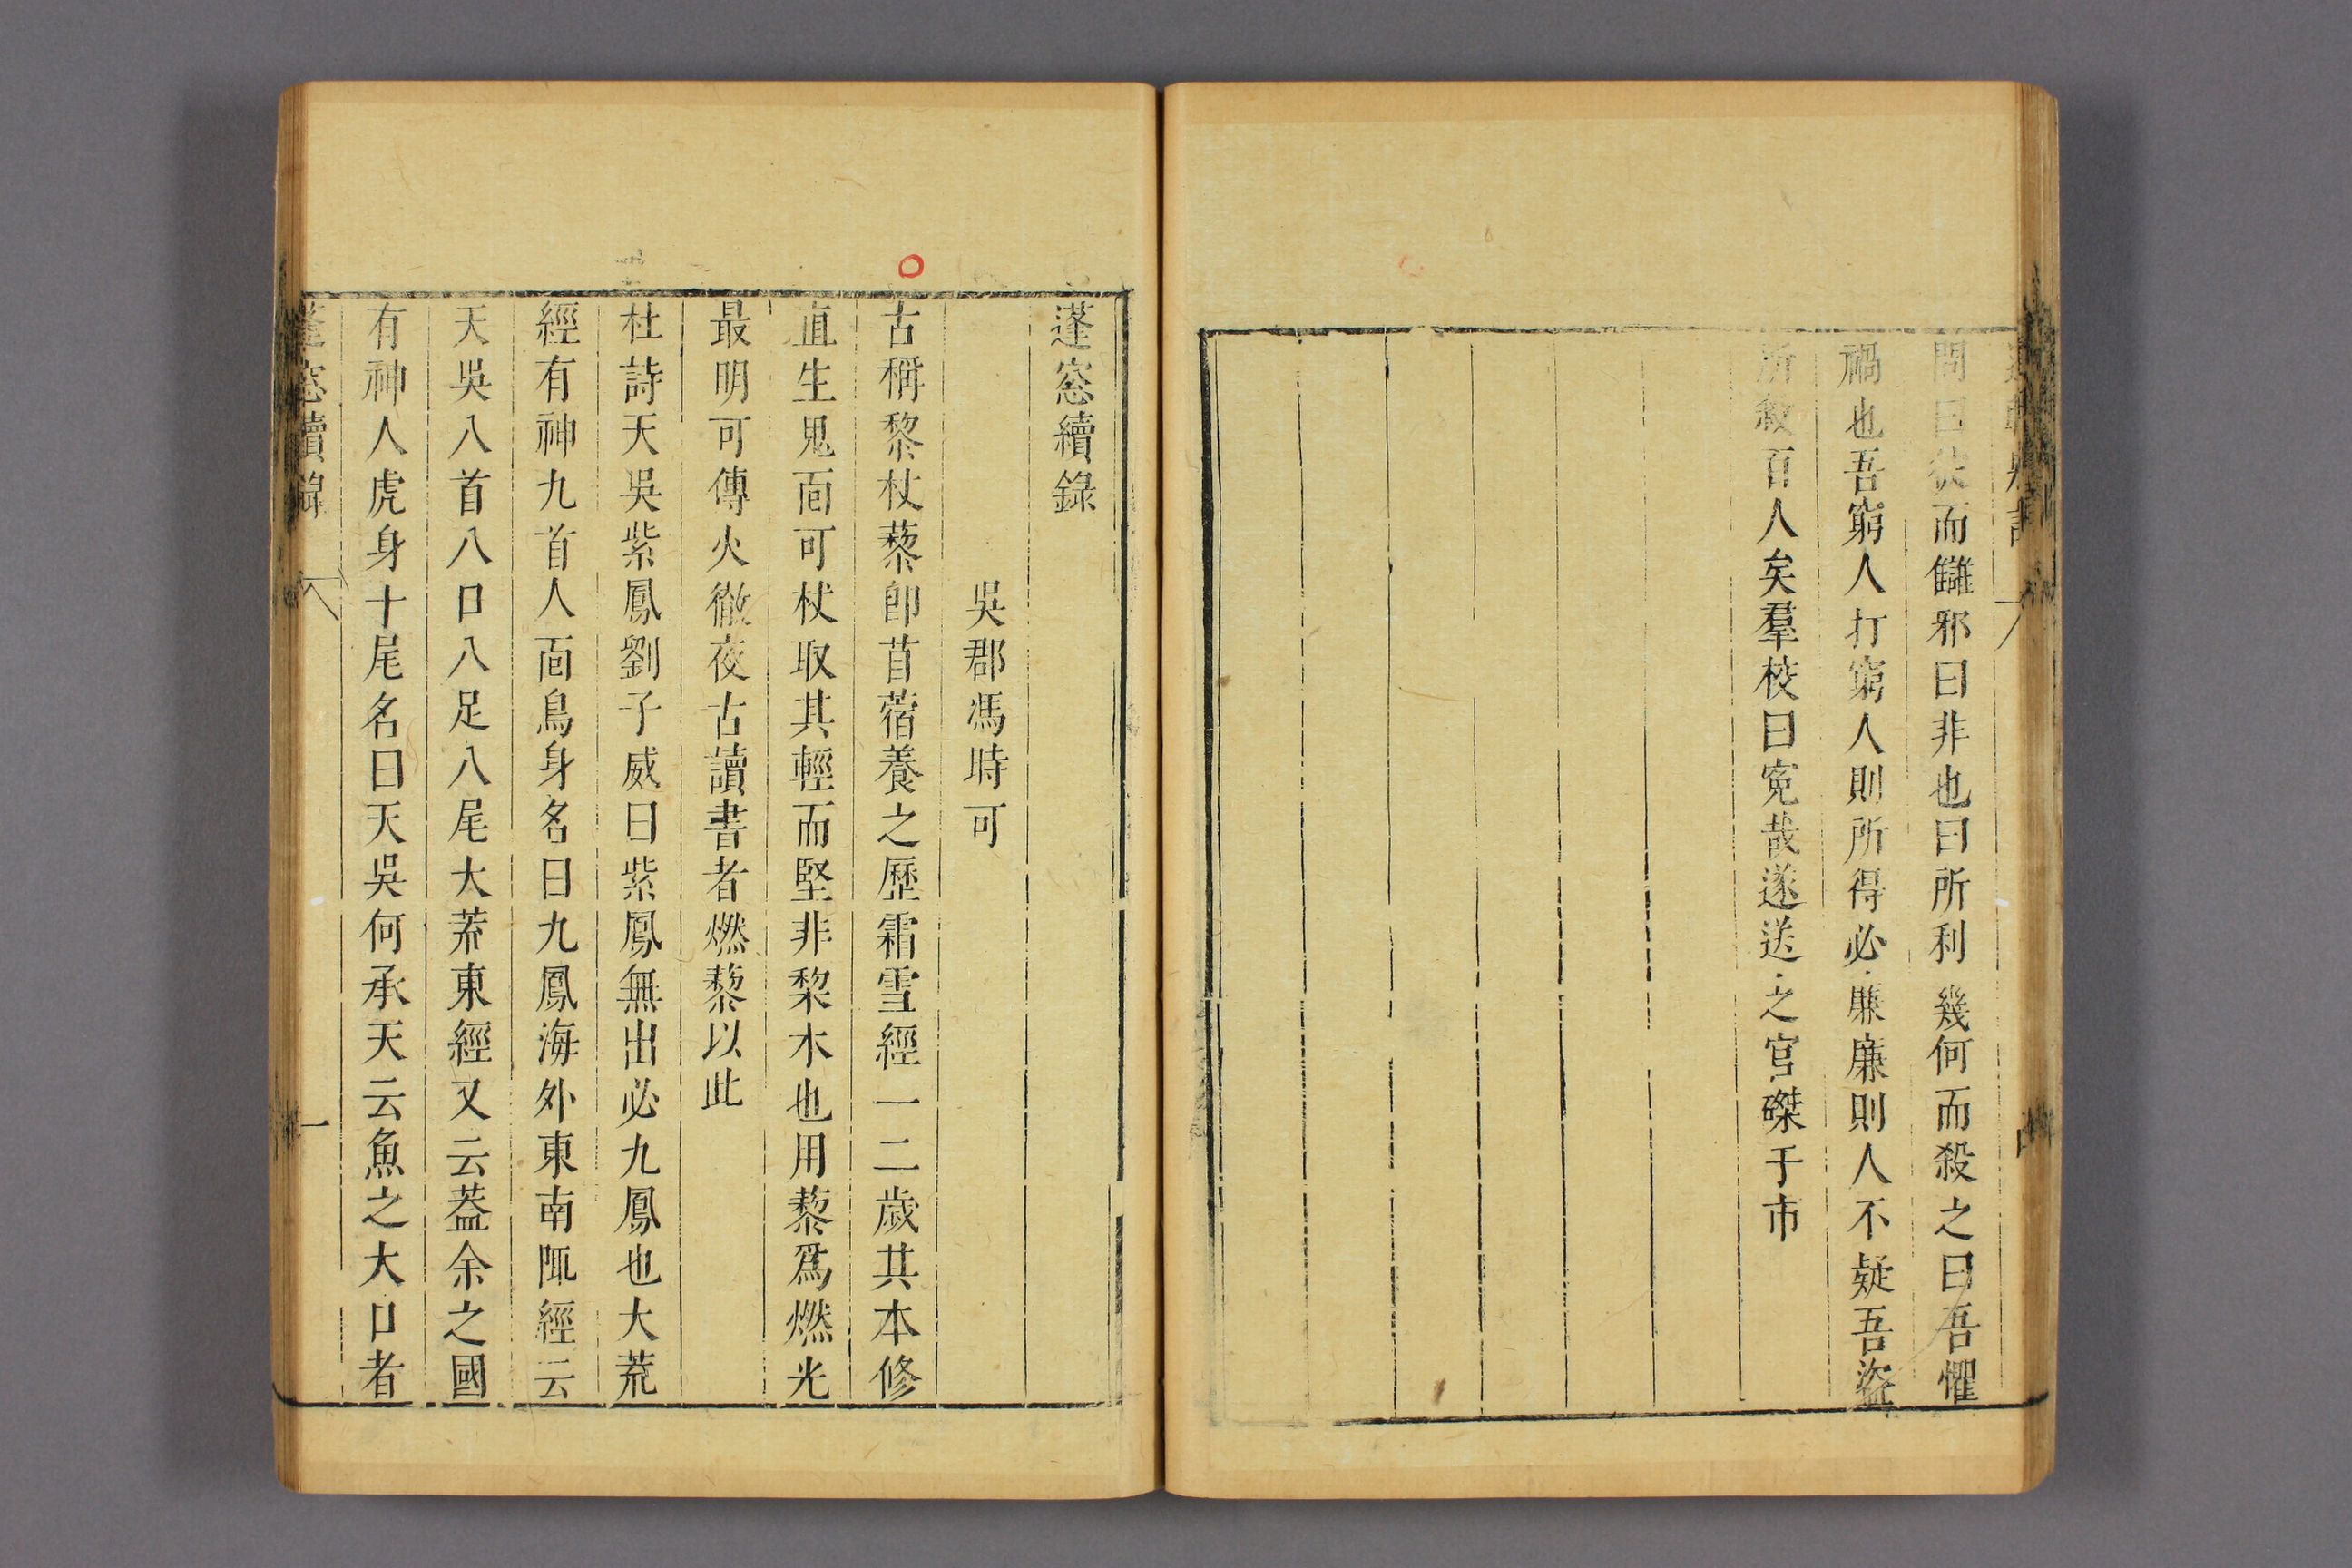 問曰彼而讎邪曰非也曰所利幾何而殺之曰吾懼
禍也吾窮人打窮人則所得必廉廉則人不疑吾盜
所殺百人矣羣校曰冤哉遂送之官磔于市
蓬窓續錄
吳郡馮時可
古稱黎杖藜卽苜蓿養之歷霜雪經一二歲其本修
直生鬼面可杖取其輕而堅非棃木也用藜爲燃光
最明可傳火徹夜古讀書者燃藜以此
杜詩天吳紫鳳劉子威曰紫鳳無出必九鳳也大荒
經有神九首人面鳥身名曰九鳳海外東南陬經云
天吳八首八口八足八尾大荒東經又云蓋余之國
有神人虎身十尾名曰天吳何承天云魚之大口者
蓬窓續錄
一